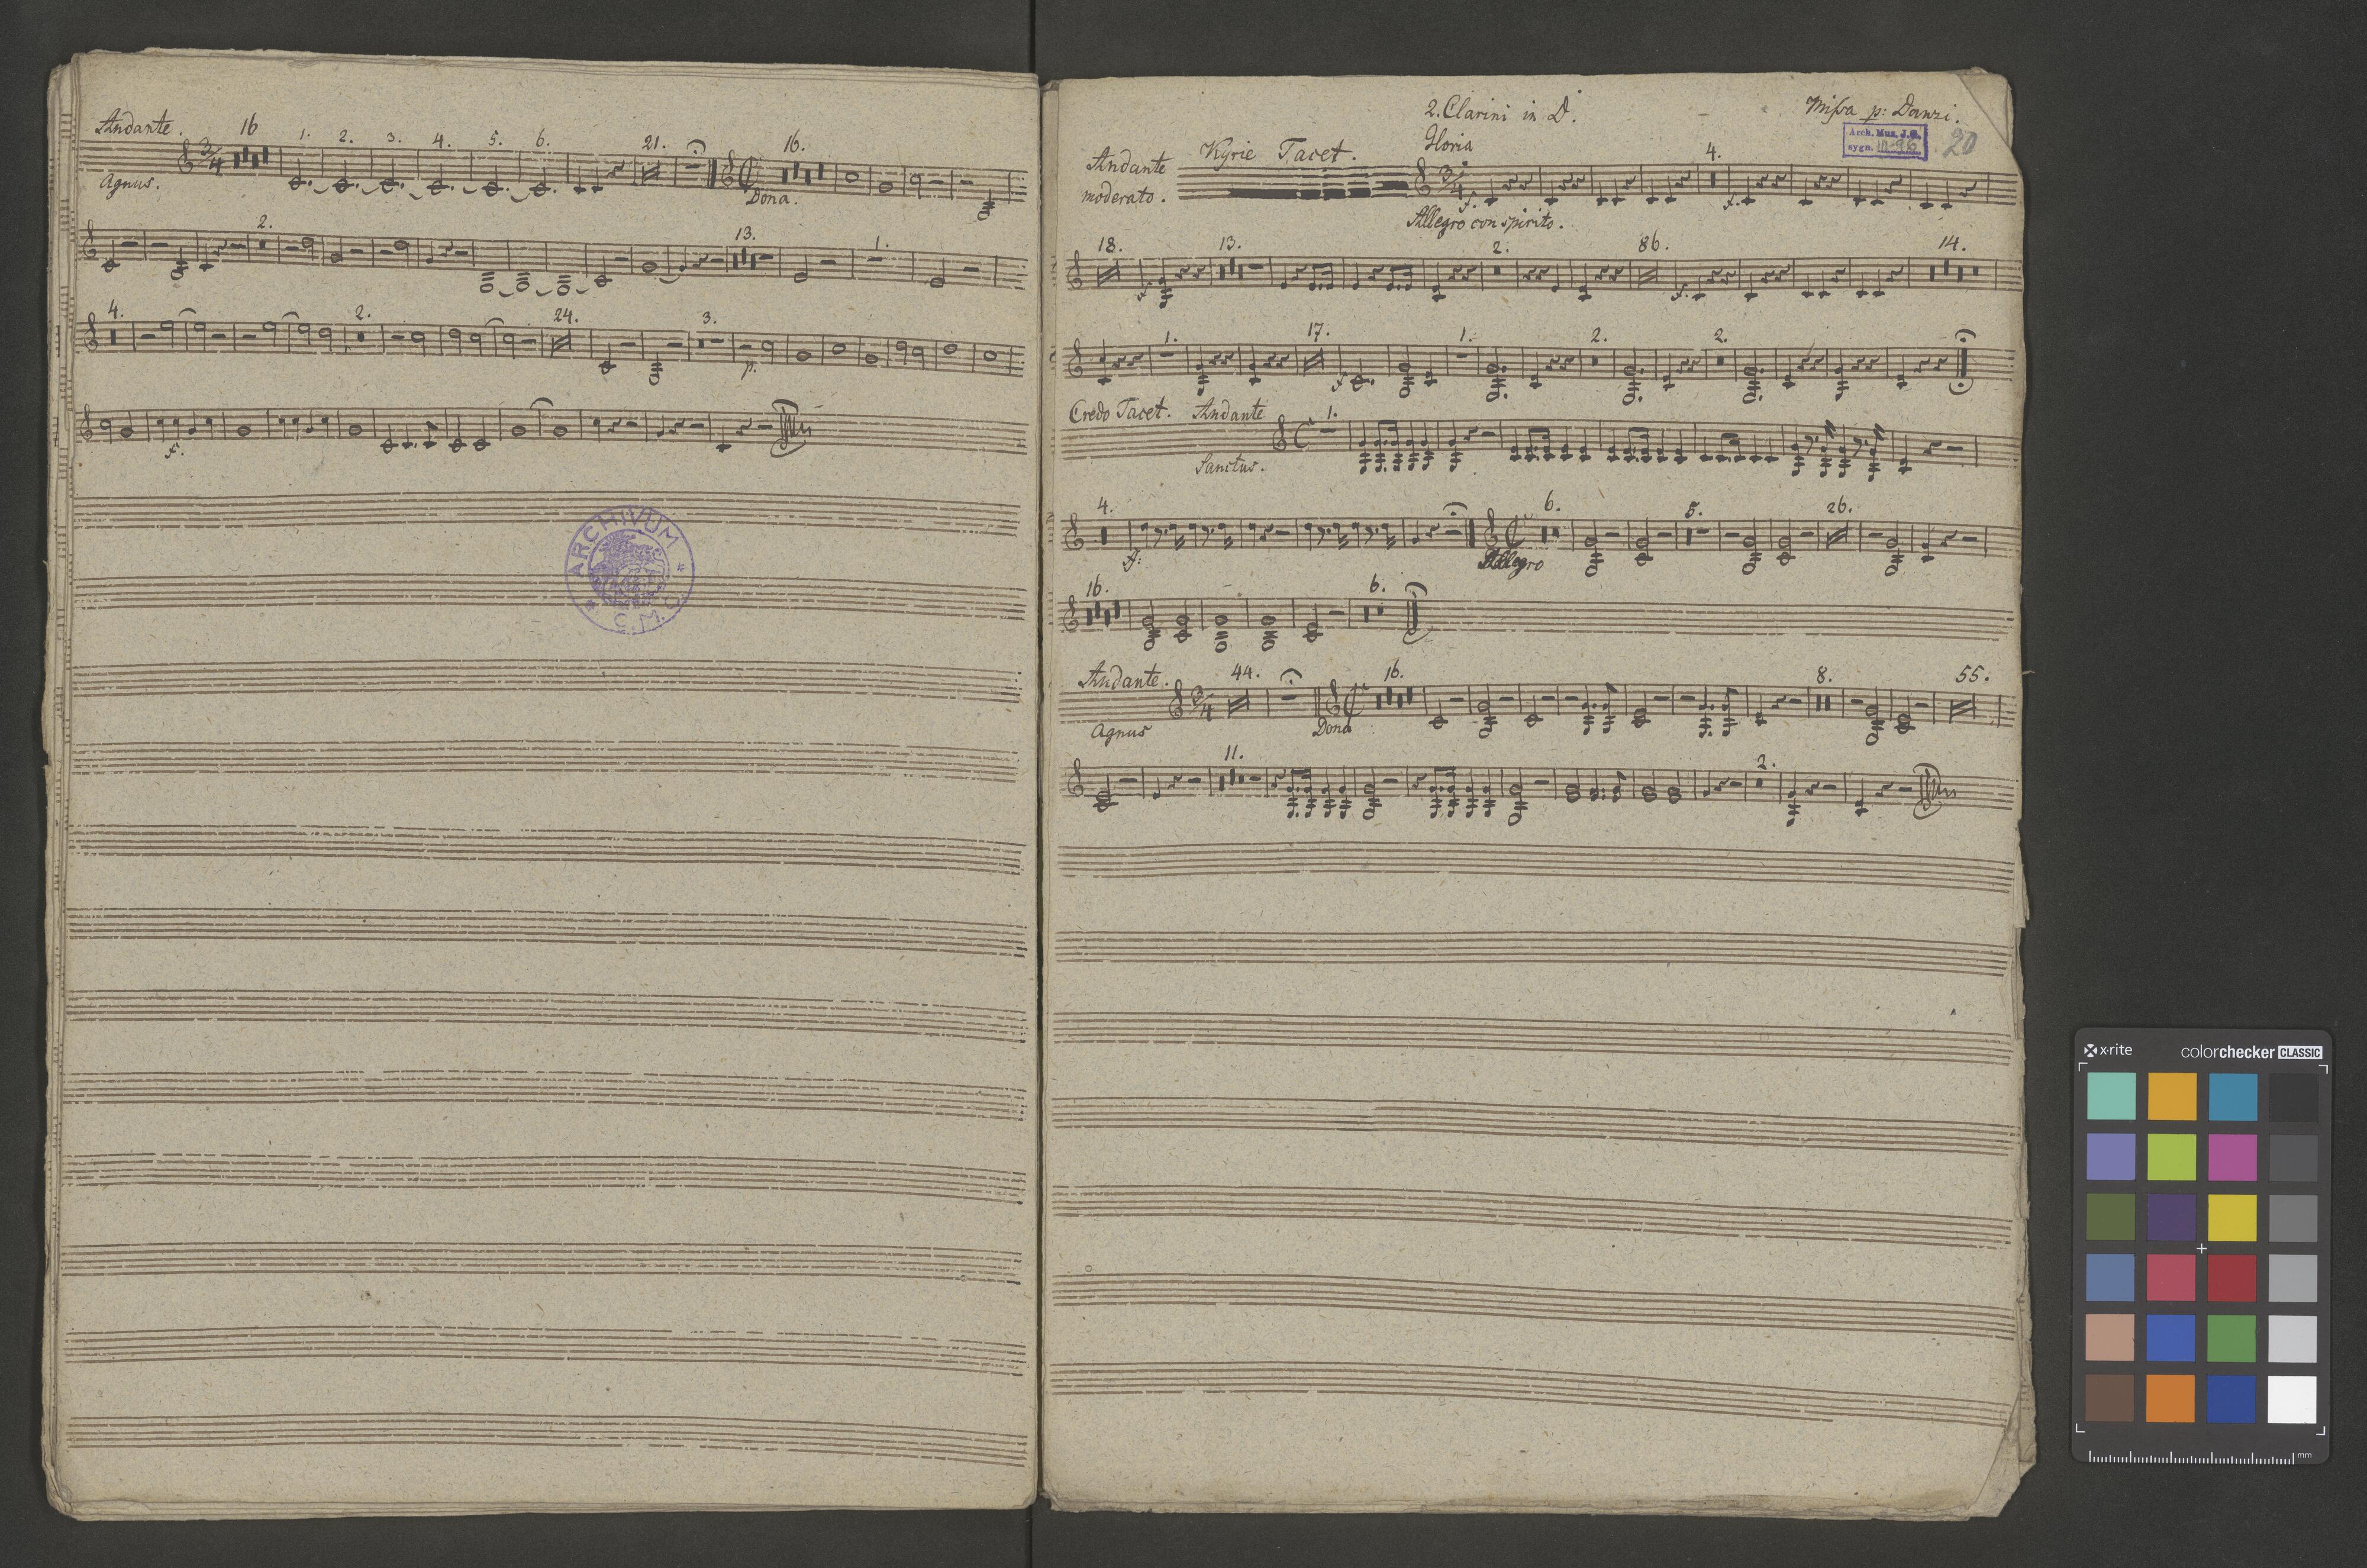 Andante. 16 1. 2. 3. 4. 5. 6. 21. 16.
3/4
Agnus. Dona.
2. 13. 1.
4. 2. 24. 3.
p.
f.
ARCHIVUM
2. Clarini in D. Missa p: Danzi.
Arch. Muz. J.G.
sygn. III-96 20
Andante Kyrie Tacet. Gloria 4.
moderato. 3/4 f. f.
Allegro con spirito.
18. 13. 2. 86. 14.
f. f.
1. 17. 1. 2. 2.
f
Credo Tacet. Andante 1.
Sanctus.
4. 6. 5. 26.
f: Allegro
16. 6.
Andante. 44. 16. 8. 55.
3/4
Agnus Dona
11. 2.
x-rite colorchecker CLASSIC
mm